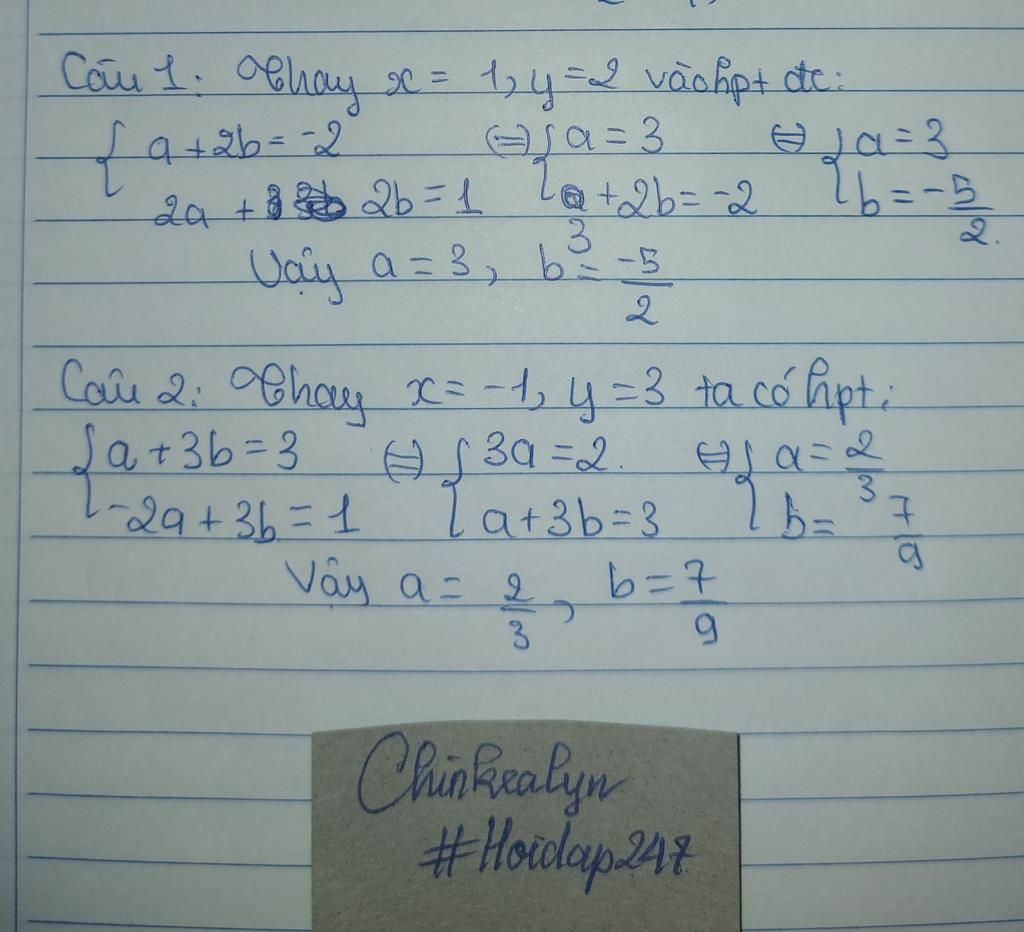 Câu 1: Thay x = 1, y = 2 vào hpt đc:
{ a + 2b = -2 (=) { a = 3 <=> { a = 3
2a + 2b = 1 3 + 2b = -2 b = -5/2.
Vậy a = 3, b = -5/2
Câu 2: Thay x = -1, y = 3 ta có hpt:
{ a + 3b = 3 (=) { 3a = 2. <=> { a = 2/3
-2a + 3b = 1 a + 3b = 3 b = 7/9
Vậy a = 2/3, b = 7/9
Chinkealyn
#Hoidap247